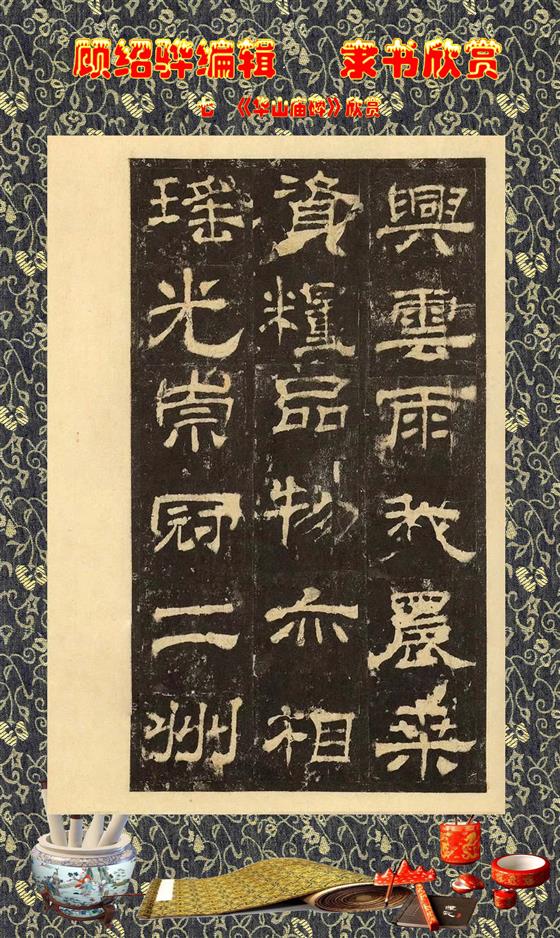 顾绍骅编辑 隶书欣赏
心 《华山庙碑》欣赏
興雲雨我農桒
資糧品物亦相
瑤光崇冠二州